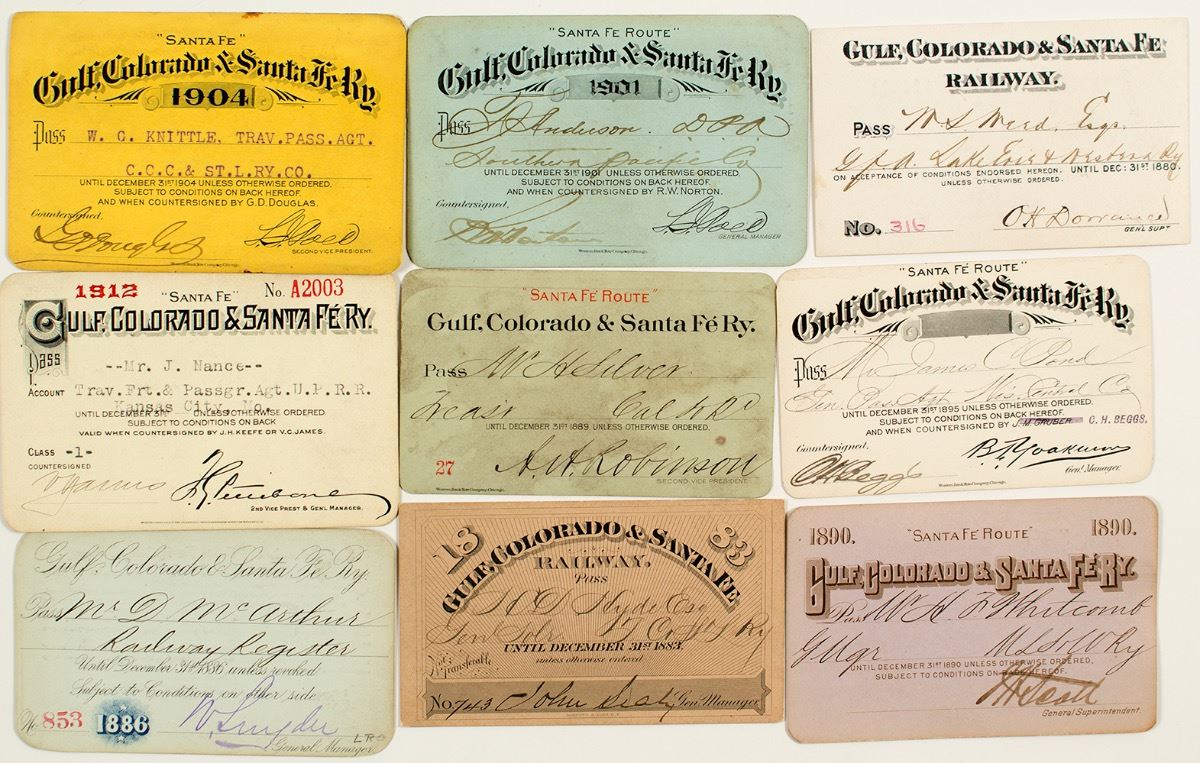 "SANTA FE"
Gulf, Colorado & Santa Fe Ry.
1904
Pass W. C. KNITTLE, TRAV.PASS.AGT.
C.C.C.& ST.L.RY.CO.
UNTIL DECEMBER 31ST 1904 UNLESS OTHERWISE ORDERED,
SUBJECT TO CONDITIONS ON BACK HEREOF,
AND WHEN COUNTERSIGNED BY G.D. DOUGLAS.
Countersigned,
SECOND VICE PRESIDENT.
"SANTA FE ROUTE"
Gulf, Colorado & Santa Fe Ry.
1901
Pass Anderson. D P A
Southern Pacific Co
UNTIL DECEMBER 31ST 1901 UNLESS OTHERWISE ORDERED,
SUBJECT TO CONDITIONS ON BACK HEREOF,
AND WHEN COUNTERSIGNED BY R.W. NORTON.
Countersigned,
GENERAL MANAGER
GULF, COLORADO & SANTA FE
RAILWAY.
PASS W. S. Weed, Esq.
G.P.A. Lake Erie & Western Ry
ON ACCEPTANCE OF CONDITIONS ENDORSED HEREON. UNTIL DEC: 31ST 1880.
UNLESS OTHERWISE ORDERED.
No. 316
GENL SUPT
1912 "SANTA FE" No. A2003
GULF, COLORADO & SANTA FÉ RY.
Pass --Mr. J. Nance--
ACCOUNT Trav.Frt.& Passgr.Agt.U.P.R.R.
Kansas City, Mo.
UNTIL DECEMBER 31ST UNLESS OTHERWISE ORDERED
SUBJECT TO CONDITIONS ON BACK
VALID WHEN COUNTERSIGNED BY J.H. KEEFE OR V.C. JAMES.
CLASS -1-
COUNTERSIGNED
2ND VICE PREST & GEN'L MANAGER.
"SANTA FÉ ROUTE"
Gulf, Colorado & Santa Fé Ry.
Pass Mr H Silver
UNTIL DECEMBER 31ST 1889, UNLESS OTHERWISE ORDERED.
27 A. A. Robinson
SECOND VICE PRESIDENT.
"SANTA FÉ ROUTE"
Gulf, Colorado & Santa Fe Ry.
Pass Mr James C Pond
Gen. Pas. Agt Wis. Central Co
UNTIL DECEMBER 31ST 1895 UNLESS OTHERWISE ORDERED,
SUBJECT TO CONDITIONS ON BACK HEREOF,
AND WHEN COUNTERSIGNED BY J. M GRUBER C. H. BEGGS.
Countersigned,
C H Beggs
B. F. Yoakum
Gen'l Manager.
Gulf, Colorado & Santa Fe Ry.
Pass Mr D. McArthur
Railway Register
Until December 31st 1886 unless revoked
Subject to Conditions on other side
No 853 1886 W. Snyder
General Manager
18 83
GULF, COLORADO & SANTA FE
RAILWAY.
Pass
A D Hyde Esq
UNTIL DECEMBER 31ST 1883.
unless otherwise ordered
Not Transferable
No. 743 John Sealy Gen Manager
1890. "SANTA FÉ ROUTE" 1890.
GULF, COLORADO & SANTA FÉ RY.
Pass Mr H F Whitcomb
G Mgr M L S & W Ry
UNTIL DECEMBER 31ST 1890 UNLESS OTHERWISE ORDERED,
SUBJECT TO CONDITIONS ON BACK HEREOF.
General Superintendent.